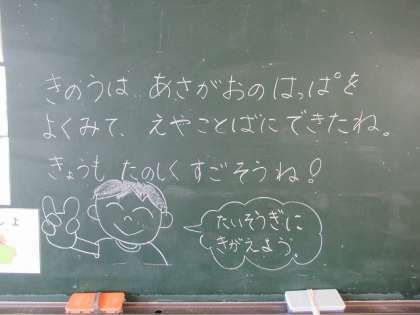 きのうは、あさがおのはっぱを
よくみて、えやことばにできたね。
きょうも たのしくすごそうね!
たいそうぎに
きがえよう。
しょ